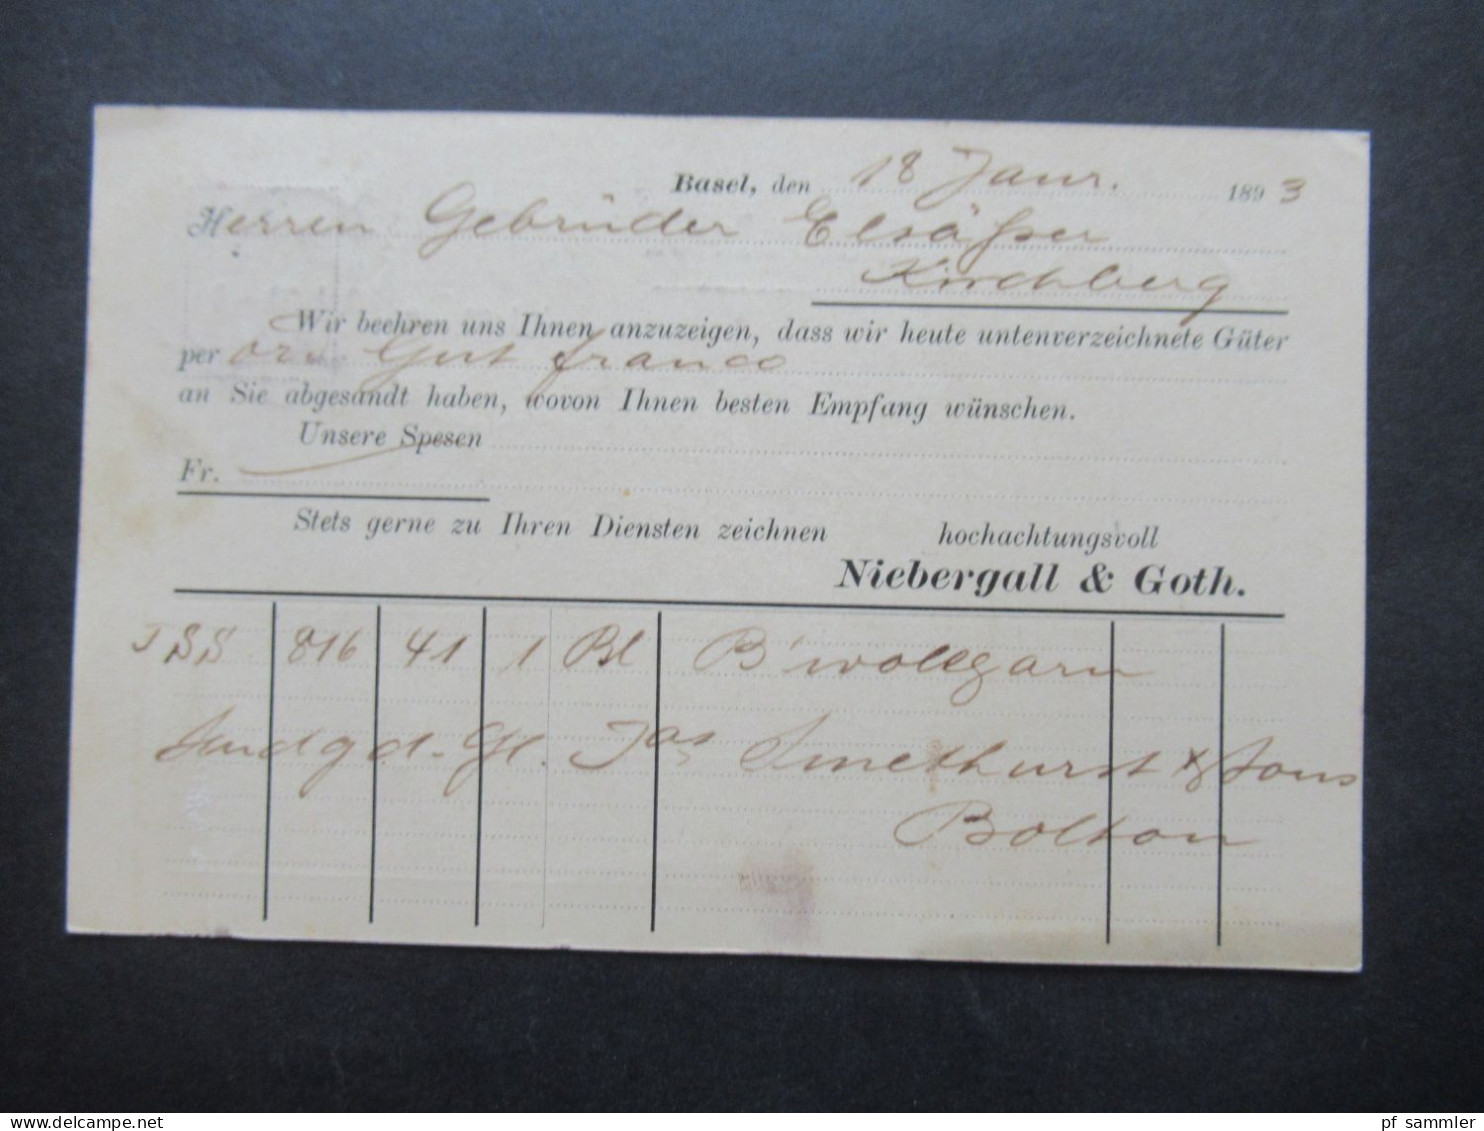 Basel, den 18 Janr. 1893
Herren Gebrüder Elsäßer
Kirchberg
Wir beehren uns Ihnen anzuzeigen, dass wir heute untenverzeichnete Güter
per ord. Gut franco
an Sie abgesandt haben, wovon Ihnen besten Empfang wünschen.
Unsere Spesen
Fr.
Stets gerne zu Ihren Diensten zeichnen hochachtungsvoll
Niebergall & Goth.
JSS 816 41 1 Bl B'wollgarn
Sendg d. Jas Smethurst & Sons
Bolton
www.delcampe.net
pf_sammler